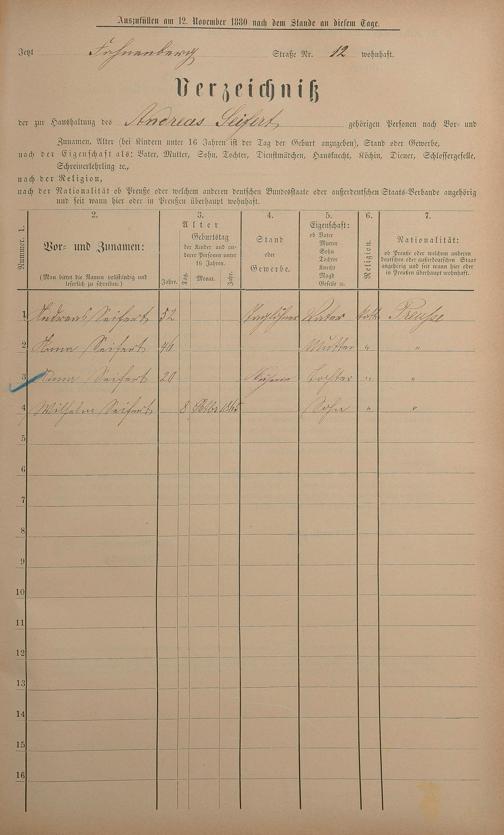 Auszufüllen am 12. November 1880 nach dem Stande an diesem Tage.
Jetzt Fahnenberg Straße Nr. 12 wohnhaft.
Verzeichniß
der zur Haushaltung des Andreas Seifert gehörigen Personen nach Vor- und
Zunamen, Alter (bei Kindern unter 16 Jahren ist der Tag der Geburt anzugeben), Stand oder Gewerbe,
nach der Eigenschaft als: Vater, Mutter, Sohn, Tochter, Dienstmädchen, Hausknecht, Köchin, Diener, Schlossergeselle,
Schreinerlehrling ec.,
nach der Religion,
nach der Nationalität ob Preuße oder welchem anderen deutschen Bundesstaate oder außerdeutschen Staats-Verbande angehörig
und seit wann hier oder in Preußen überhaupt wohnhaft.
Nummer. 1.
2.
Vor- und Zunamen:
(Man bittet die Namen vollständig und
leserlich zu schreiben.)
3.
Alter
Geburtstag
der Kinder und anderer Personen unter
16 Jahren.
Jahre. Tag. Monat. Jahr.
4.
Stand
oder
Gewerbe.
5.
Eigenschaft:
ob Vater
Mutter
Sohn
Tochter
Knecht
Magd
Geselle u.
6.
Religion.
7.
Nationalität:
ob Preuße oder welchem anderen
deutschen oder außerdeutschen Staat
angehörig und seit wann hier oder
in Preußen überhaupt wohnhaft.
1 Andreas Seifert 52 Taglöhner Vater kath. Preuße
2 Anna Seifert 46 Mutter " "
3 Anna Seifert 20 Tochter " "
4 Wilhelm Seifert 8 Sohn " "
5
6
7
8
9
10
11
12
13
14
15
16